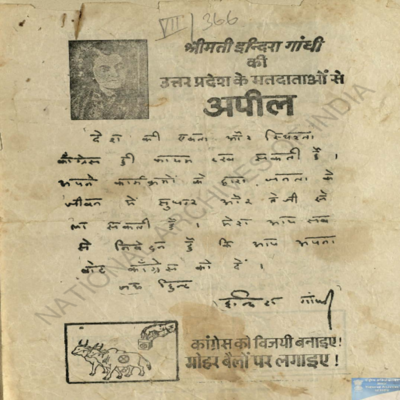 VII/366
श्रीमती इन्दिरा गांधी
की
उत्तर प्रदेश के मतदाताओं से
अपील
देश की एकता और स्थिरता
कांग्रेस ही कायम रख सकती है।
अपने कार्यक्रमों के द्वारा जनता के
जीवन में सुधार और तेजी से
ला सकती है। मेरा आप सब
से निवेदन है कि आप अपना
वोट कांग्रेस को दें।
जय हिन्द
इन्दिरा गांधी
कांग्रेस को विजयी बनाइए!
मोहर बैलों पर लगाइए!
NATIONAL ARCHIVES OF INDIA